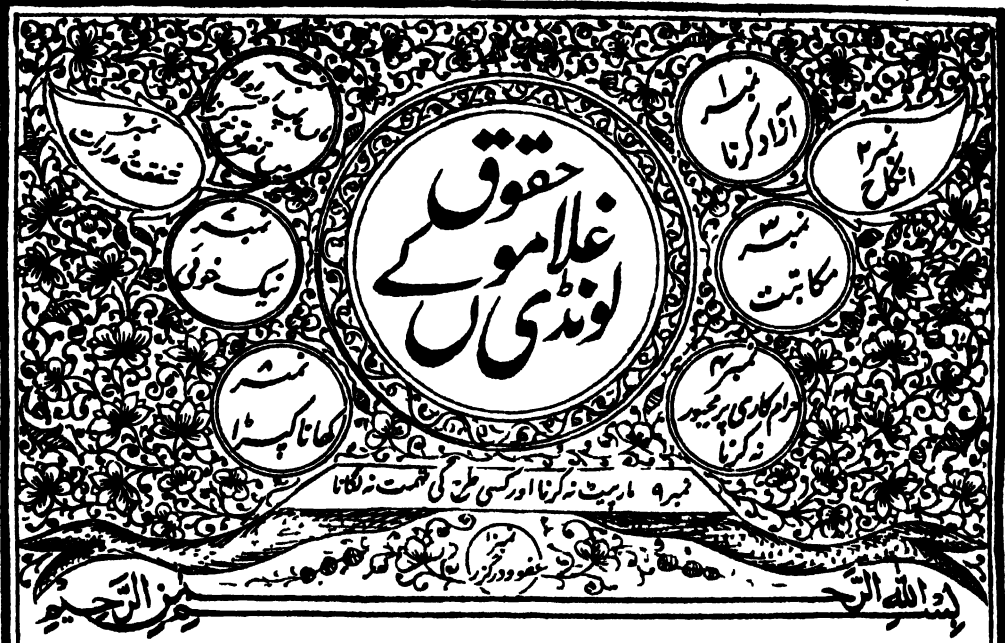 حقوق
غلاموں کے
لونڈی
نمبر ۱
آزاد کرنا
نمبر ۲
نکاح
نمبر ۳
مکاتبت
نمبر ۴
حرام کاری پر مجبور
نہ کرنا
نمبر ۶
شفقت مدارات
نمبر ۷
نیک خوئی
نمبر ۸
کھانا کپڑا
نمبر ۹ مارپیٹ نہ کرنا اور کسی طرح کی تہمت نہ لگانا
نمبر ۱۰
عفو و درگزر
بسم اللہ الرحمن الرحیم